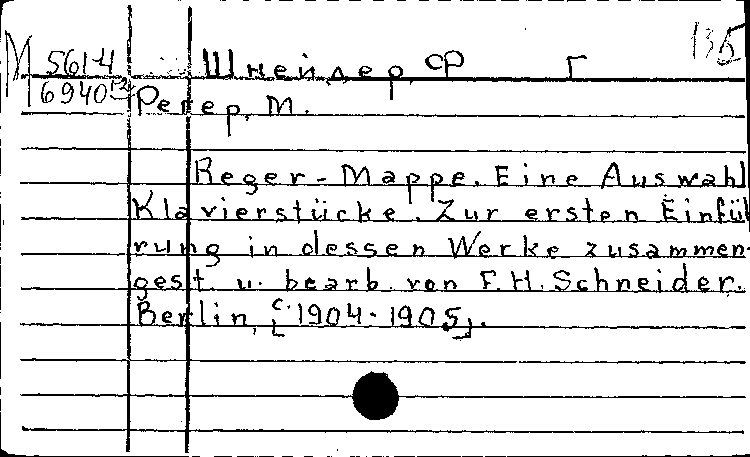 М 561-4 Шнейдер, Ф Г 135
6940 Регер, М.
Reger-Mappe. Eine Auswahl
Klavierstücke. Zur ersten Einfüh
rung in dessen Werke zusammen-
gest. u. bearb. von F.H. Schneider.
Berlin, [c. 1904-1905].